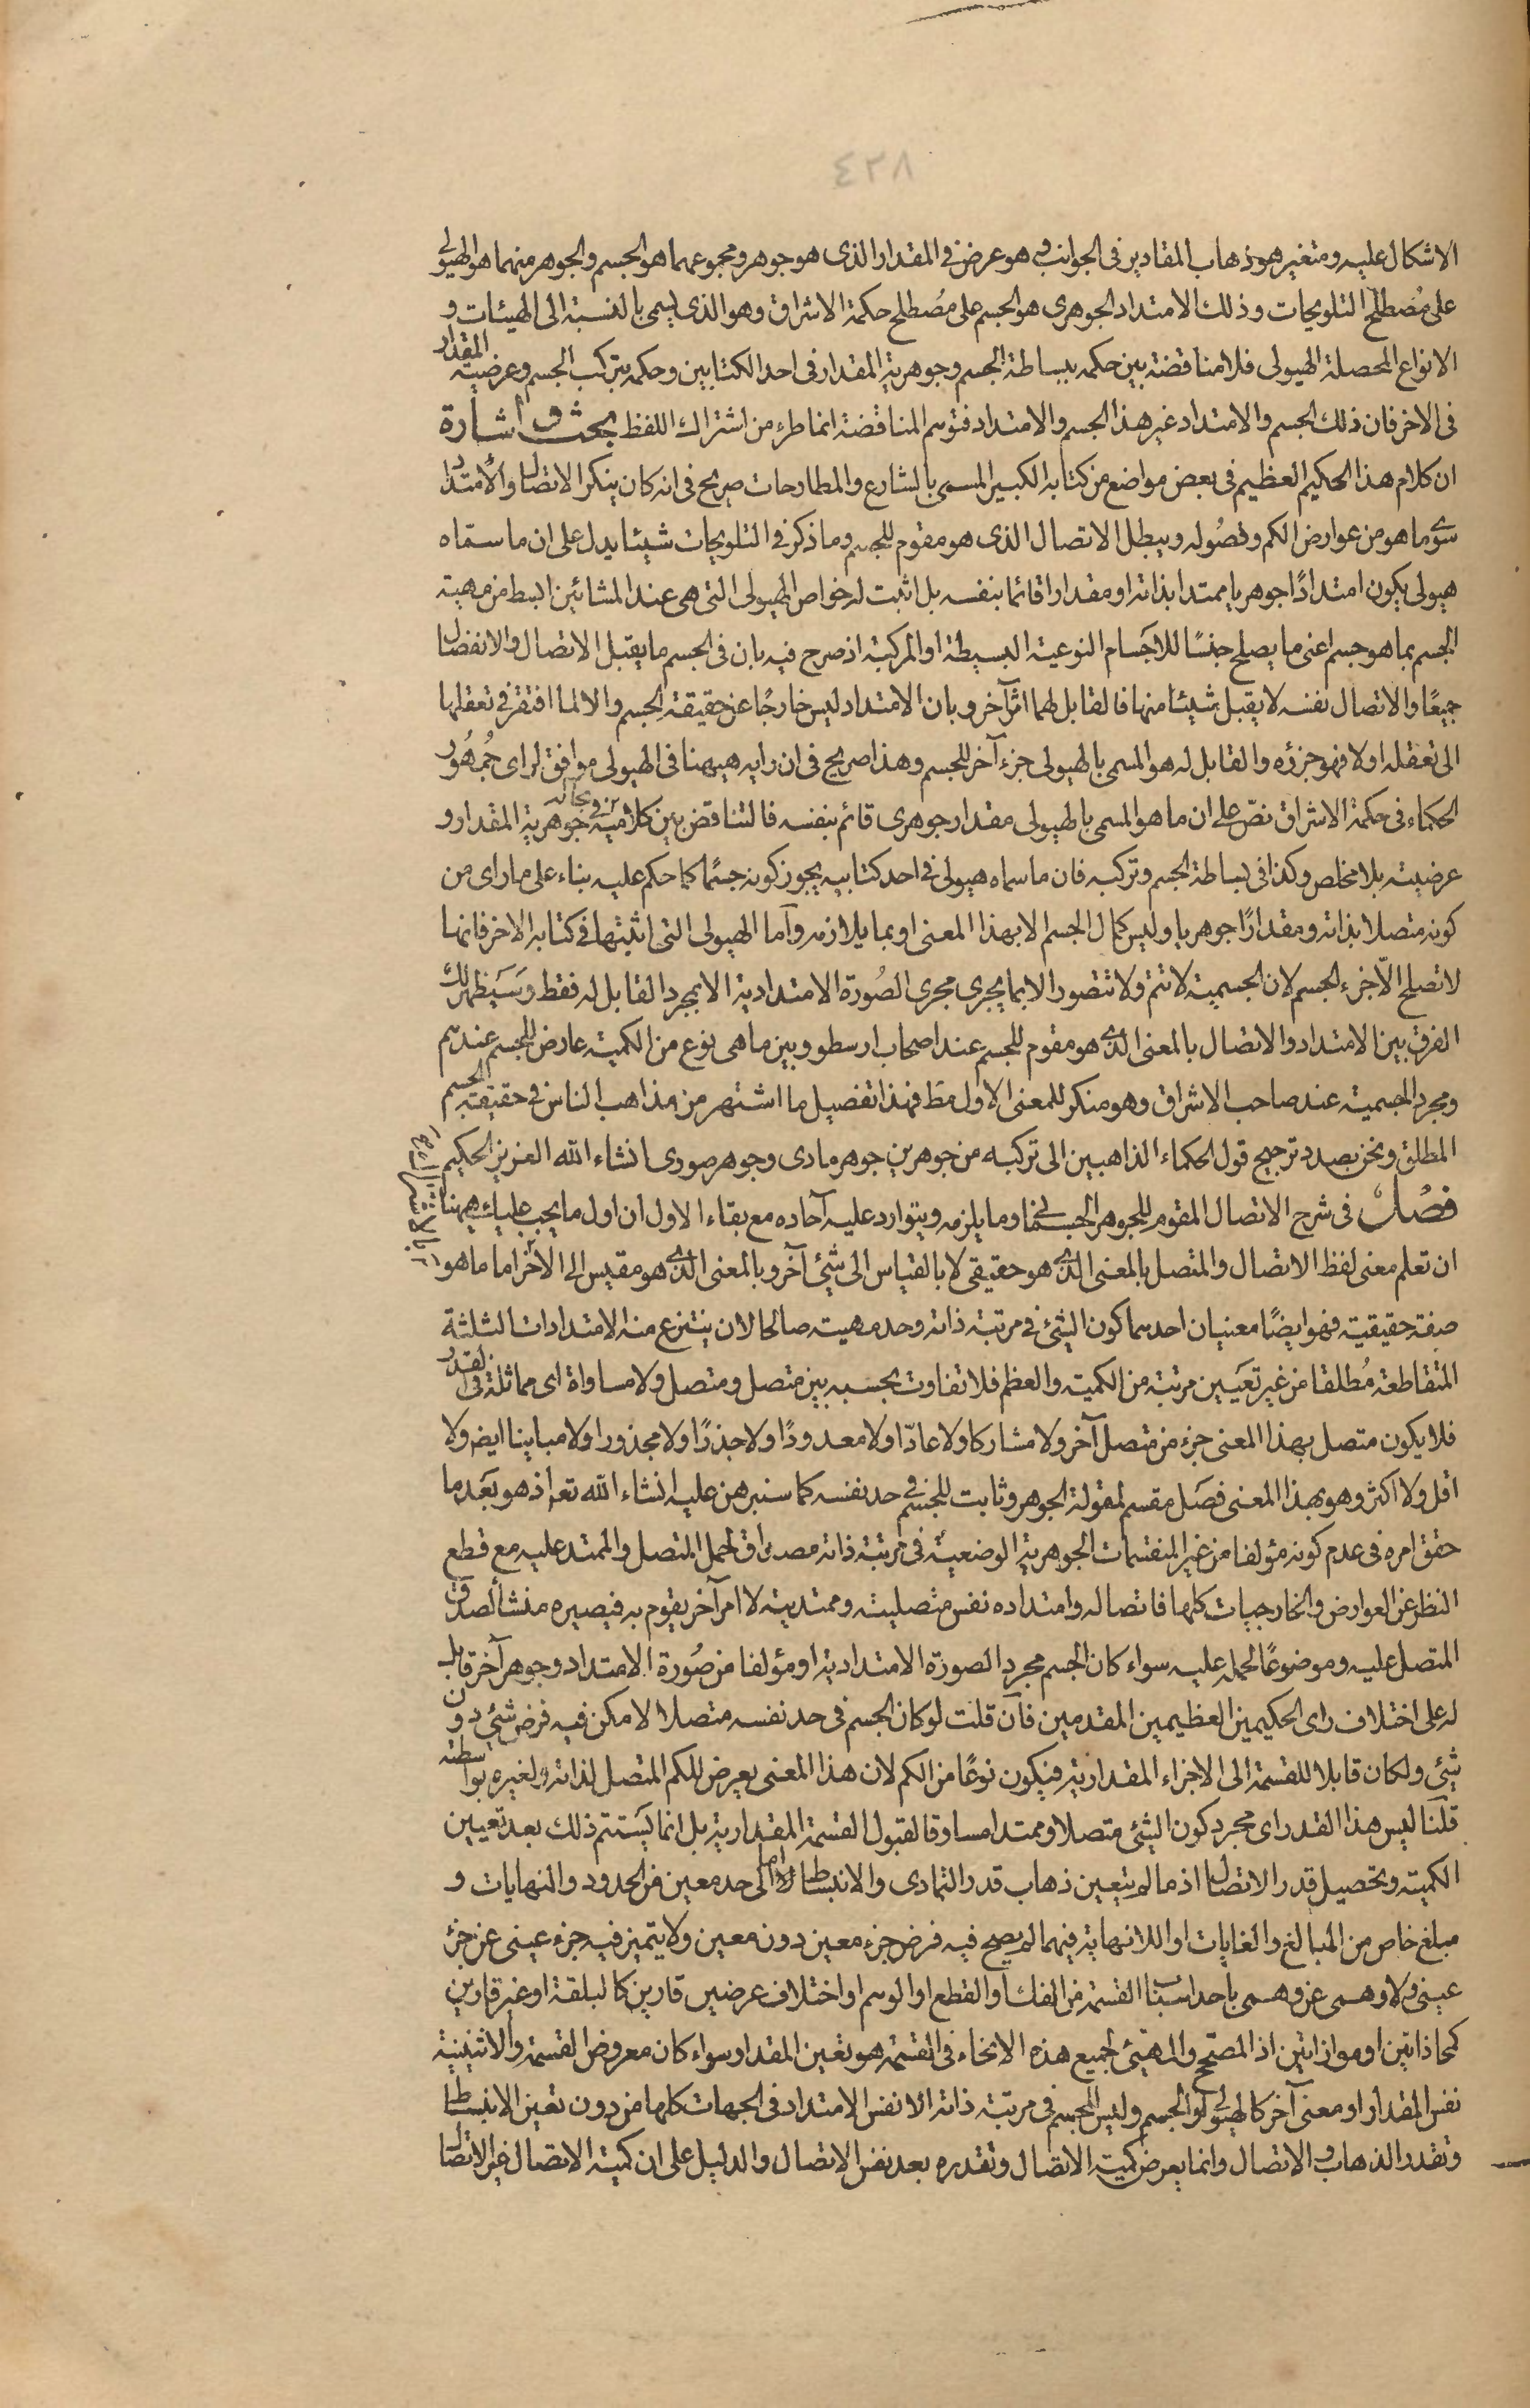 ٤٢٨
الاشكال عليه ومتغير هو ذهاب المقادير فى الجوانب وهو عرض فى المقدار الذى هو جوهر ومجموعهما هو الجسم والجوهر منهما هو الهيولى
على مُصْطلح التلويحات وذلك الامتداد الجوهرى هو الجسم على مصُطلح حكمة الاشراق وهو الذى يسمى بالنسبة الى الهيئات و
الانواع المحصلة الهيولى فلا مناقضة بين حكمه ببساطة الجسم وجوهرية المقدار فى احد الكتابين وحكمه بتركب الجسم وعرضية المقدار
فى الاخر فان ذلك الجسم والامتداد غير هذا الجسم والامتداد فتوهم المناقضة انما طرء من اشتراك اللفظ بحث و اشارة
ان كلام هذا الحكيم العظيم فى بعض مواضع من كتابه الكبير المسمى بالشارع والمطارحات صريح فى انه كان ينكر الاتصال والأمتداد
سوى ما هو من عوارض الكم وفصُوله ويبطل الاتصال الذى هو مقوم للجسم وما ذكر فى التلويحات شيئا يدل على ان ما سمّاه
هيولى يكون امتدادًا جوهريا ممتدا بذاته او مقدارا قائما بنفسه بل اثبت له خواص الهيولى التى هى عند المشائين ابسط من مهية
الجسم بما هو جسم اعنى ما يصلح جنسًا للاجَسام النوعية البسيطة او المركبة اذ صرح فيه بان فى الجسم ما يقبل الاتصال والانفصال
جميعًا والاتصال نفسه لا يقبل شيئا منها فالقابل لهما امر آخر وبان الامتداد ليس خارجًا عن حقيقة الجسم والا لما افتقر فى تعقلها
الى تعقله اولا فهو جزؤه والقابل له هو المسمى بالهيولى جزء آخر للجسم وهذا صريح فى ان رايه هيهنا فى الهيولى موافق لراى جُمهُور
الحكماء فى حكمة الاشراق نصّ على ان ما هو المسمى بالهيولى مقدار جوهرى قائم بنفسه فالتناقض بين كلاميه فى جوهرية المقدار و
عرضيته بلا مخلص وكذا فى بساطة الجسم وتركبه فان ما سماه هيولى فى احد كتابيه يجوز كونه جسمًا كما حكم عليه بناء على ما راى من
كونه متصلا بذاته ومقدارًا جوهريا وليس كمال الجسم الا بهذا المعنى او بما يلازمه وآما الهيولى التى اثبتها فى كتابه الاخر فانها
لا تصلح الّا جزء الجسم لان الجسمية لا تتم ولا تتصور الا بما يجرى مجرى الصُورة الامتدادية لا بمجرد القابل له فقط وسَيَظهر لك
الفرق بين الامتداد والاتصال بالمعنى الذى هو مقوم للجسم عند اصحاب ارسطو وبين ما هى نوع من الكمية عارض للجسم عندهم
ومجرد الجسمية عند صاحب الاشراق وهو منكر للمعنى الاول مط فهذا تفصيل ما اشتهر من مذاهب الناس فى حقيقة الجسم
المطلق ونحن بصدد ترجيح قول الحكماء الذاهبين الى تركبه من جوهرين جوهر مادى وجوهر صورى انشاء الله العزيز الحكيم
فصُل فى شرح الاتصال المقوم للجوهر الجسمانى وما يلزمه ويتوارد عليه آحاده مع بقاء الاول ان اول ما يجب عليك هيهنا
ان تعلم معنى لفظ الاتصال والمتصل بالمعنى الذى هو حقيقى لا بالقياس الى شئ آخر وبالمعنى الذى هو مقيس الى الآخر اما ما هو
صفة حقيقية فهو ايضًا معنيان احدهما كون الشئ فى مرتبة ذاته وحد مهيته صالحا لان ينتزع منه الامتدادات الثلثة
المتقاطعة مُطلقا من غير تعَيين مرتبة من الكمية والعظم فلا تفاوت بحسبه بين متصل ومتصل ولا مساواة اى مماثلة فى القدر
فلا يكون متصل بهذا المعنى جزء من متصل آخر ولا مشاركا ولا عادّا ولا معدودًا ولا جذرًا ولا مجذورا ولا مباينا ايض ولا
اقل ولا اكثر وهو بهذا المعنى فصَل مقسم لمقولة الجوهر وثابت للجسم فى حد نفسه كما سنبرهن عليه انشاء الله تعم اذ هو بعَد ما
حقق امره فى عدم كونه مؤلفا من غير المنقسمات الجوهرية الوضعية فى مرتبة ذاته مصداق لحمل المتصل والممتد عليه مع قطع
النظر عن العوارض والخارجيات كلها فاتصاله وامتداده نفس متصليته وممتديته لا امر آخر يقوم به فيصيره منشأ لصدق
المتصل عليه وموضوعًا لحمله عليه سواء كان الجسم مجرد الصورة الامتدادية او مؤلفا من صُورة الامتداد وجوهر آخر قابل
له على اختلاف راى الحكيمين العظيمين المقدمين فآن قلت لو كان الجسم فى حد نفسه متصلا لامكن فيه فرض شئ دون
شئ ولكان قابلا للقسمة الى الاجزاء المقدارية فيكون نوعًا من الكم لان هذا المعنى يعرض للكم المتصل لذاته ولغيره بواسطته
قلنا ليس هذا القدر اى مجرد كون الشئ متصلا وممتدا مساوقا لقبول القسمة المقدارية بل انما يَستتم ذلك بعد تعيين
الكمية وتحصيل قدر الاتصال اذ ما لم يتعين ذهاب قدر التمادى والانبساط اما الى حد معين من الحدود والنهايات و
مبلغ خاص من المبالغ والغايات او اللانهاية فيهما لم يصح فيه فرض جزء معين دون معين ولا يتميز فيه جزء عينى عن جزء
عينى ولا وهمى عن وهمى باحد اسباب القسمة من الفك او القطع او الوهم او اختلاف عرضين قارين كالبلقة او غير قارين
كمحاذاتين او موازاتين اذ المصحّح والمهيئ لجميع هذه الانحاء فى القسمة هو تعين المقدار سواء كان معروض القسمة والاثنينية
نفس المقدار او معنى آخر كالهيولى او الجسم وليس للجسم فى مرتبة ذاته الا نفس الامتداد فى الجهات كلها من دون تعين الانبساط
وتقدر الذهاب والاتصال وانما يعرض كمية الاتصال وتقدره بعد نفس الاتصال والدليل على ان كمية الاتصال غير الاتصال